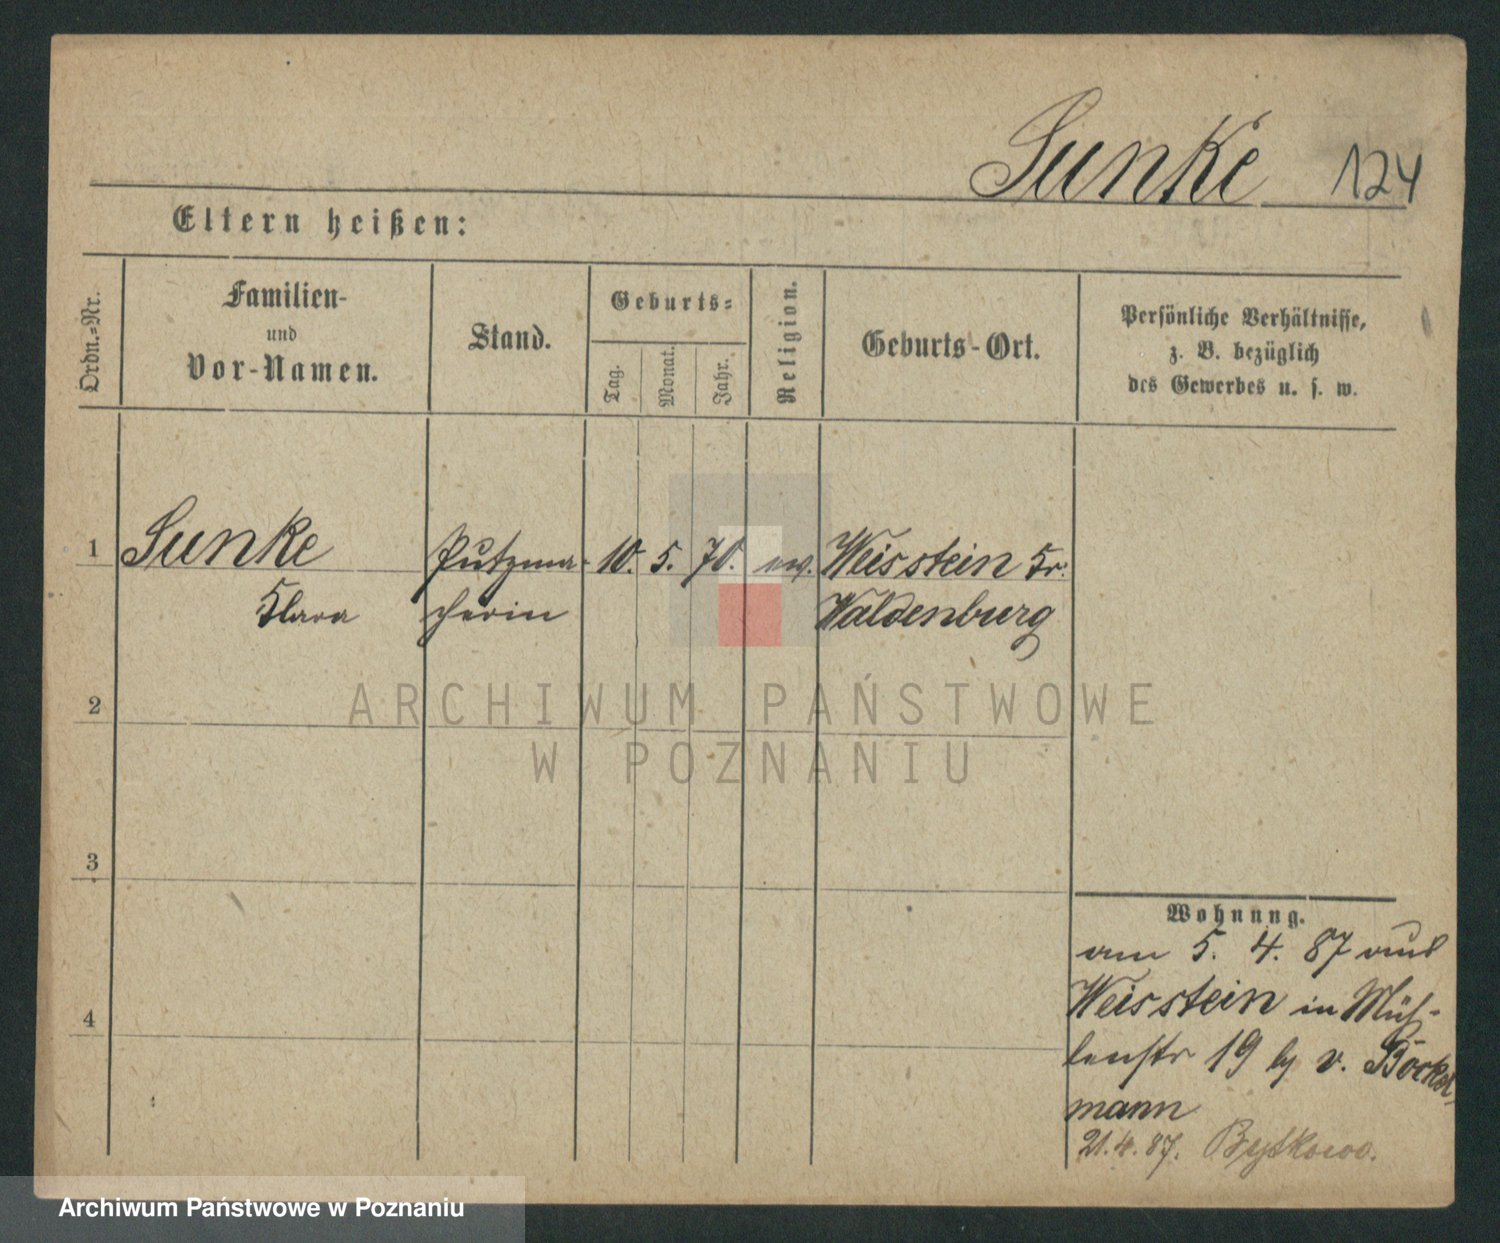 Sunke 124
Eltern heißen:
Ordn.-Nr.
Familien-
und
Vor-Namen.
Stand.
Geburts-
Tag.
Monat.
Jahr.
Religion.
Geburts-Ort.
Persönliche Verhältnisse,
z. B. bezüglich
des Gewerbes u. s. w.
1 Sunke Putzma- 10. 5. 70. ev. Weisstein Kr.
Klara cherin Waldenburg
2
ARCHIWUM PAŃSTWOWE
W POZNANIU
3
4
Wohnung.
am 5. 4. 87 aus
Weisstein in Müh-
lenstr 19 bei v. Böckel-
mann
21. 4. 87. Bytkowo.
Archiwum Państwowe w Poznaniu